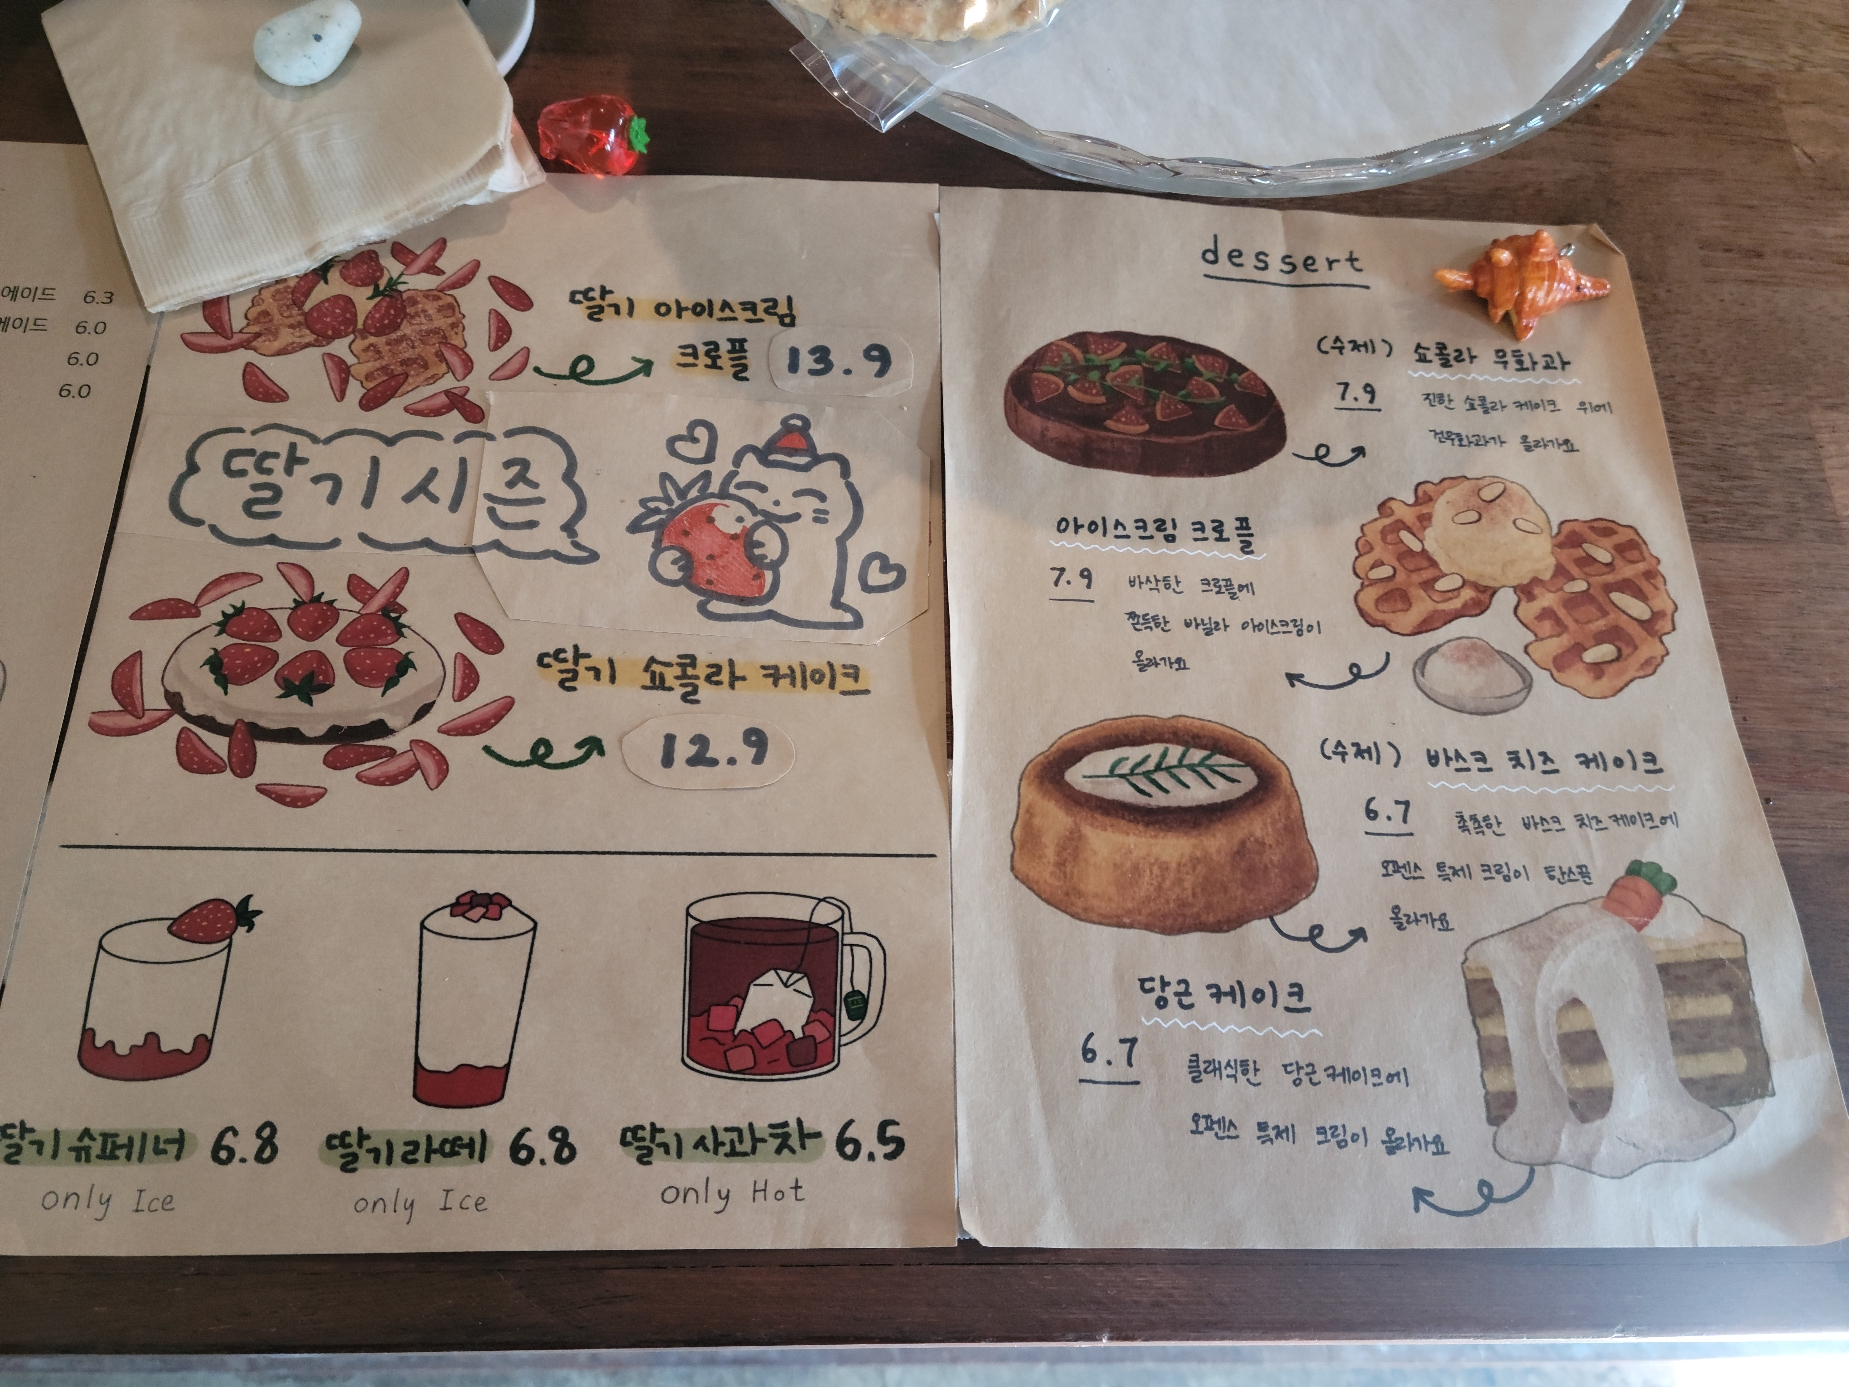 에이드 6.3
에이드 6.0
6.0
6.0
딸기 아이스크림
크로플 13.9
딸기시즌
딸기 쇼콜라 케이크
12.9
딸기슈페너 6.8
only Ice
딸기라떼 6.8
only Ice
딸기사과차 6.5
only Hot
dessert
(수제) 쇼콜라 무화과
7.9 진한 쇼콜라 케이크 위에
건무화과가 올라가요
아이스크림 크로플
7.9 바삭한 크로플에
쫀득한 바닐라 아이스크림이
올라가요
(수제) 바스크 치즈 케이크
6.7 촉촉한 바스크 치즈케이크에
오펜스 특제 크림이 한스푼
올라가요
당근 케이크
6.7 클래식한 당근케이크에
오펜스 특제 크림이 올라가요